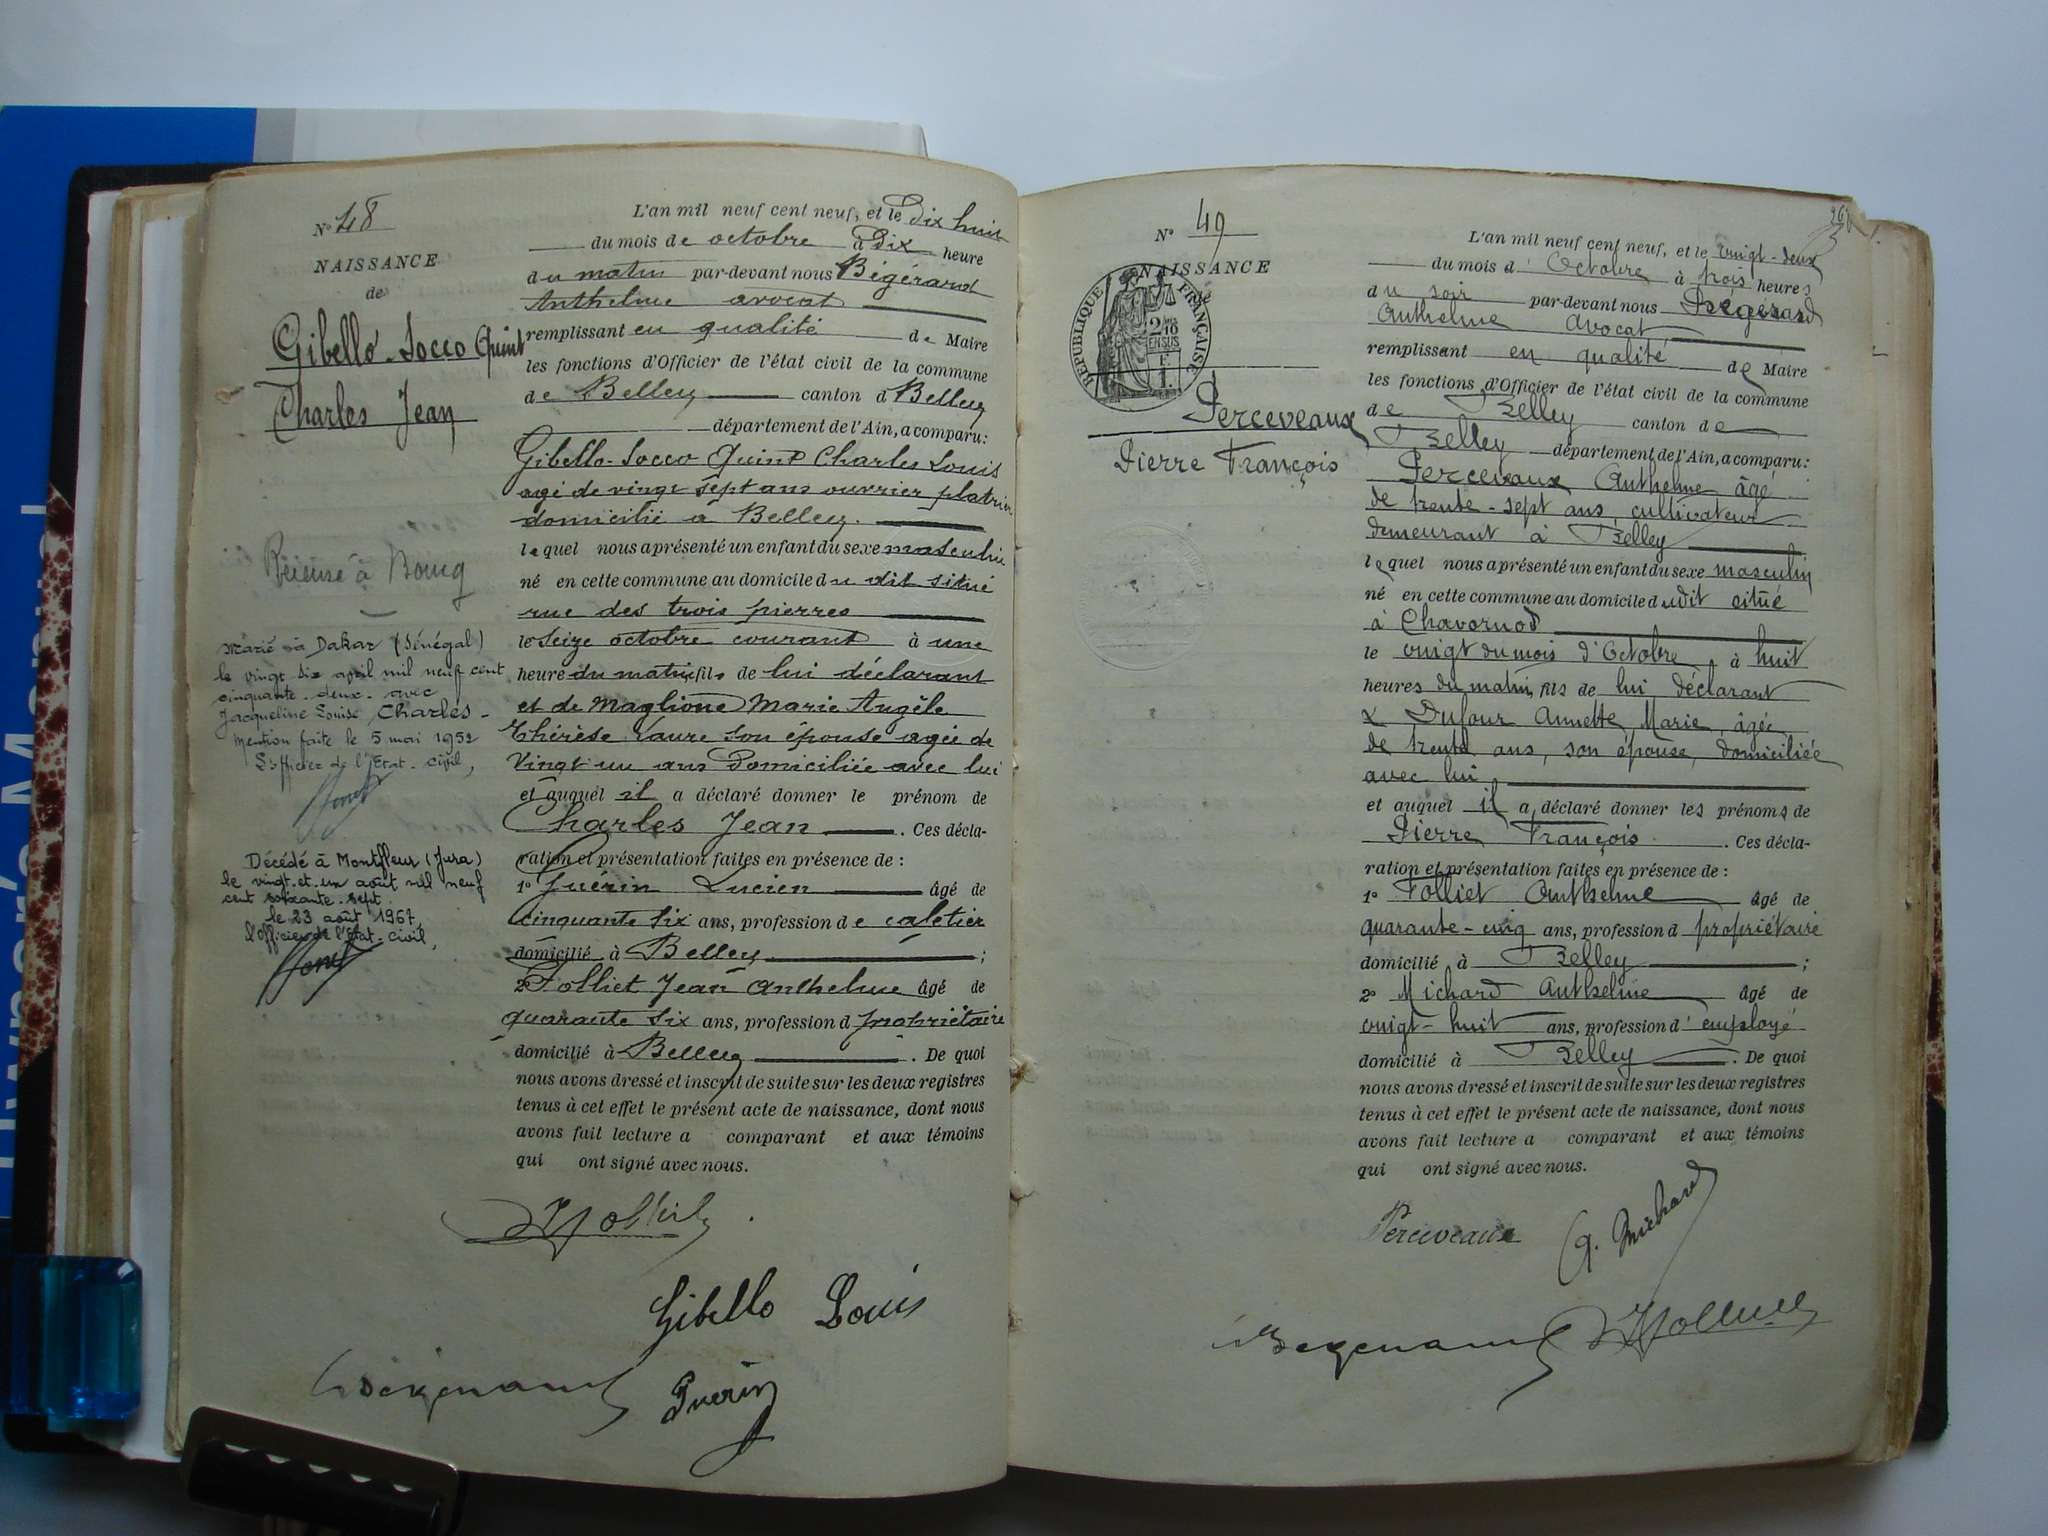 N° 48
NAISSANCE
de
Gibello-Socco Quint
Charles Jean
Marié à Dakar (Sénégal)
le vingt six avril mil neuf cent
cinquante-deux avec
Jacqueline Louise Charles-
Mention faite le 5 mai 1952
L'officier de l'Etat-civil,
Décédé à Montfleur (Jura)
le vingt-et-un août mil neuf
cent soixante-sept.
le 23 août 1967,
l'officier de l'Etat-civil,
L'an mil neuf cent neuf, et le Dix huit
du mois de octobre à Dix heure
du matin par-devant nous Bégérard
Anthelme avocat
remplissant en qualité de Maire
les fonctions d'Officier de l'état civil de la commune
de Belley canton d Belley
département de l'Ain, a comparu:
Gibello-Socco Quint Charles Louis
agé de vingt sept ans ouvrier platrier
domicilié à Belley.
lequel nous a présenté un enfant du sexe masculin
né en cette commune au domicile du dit situé
rue des trois pierres
le Seize octobre courant à une
heure du matin fils de lui déclarant
et de Maglione Marie Angèle
Thérèse Laure son épouse agée de
Vingt un ans Domiciliée avec lui
et auquel il a déclaré donner le prénom de
Charles Jean. Ces décla-
ration et présentation faites en présence de :
1° Guérin Lucien âgé de
cinquante six ans, profession de cafetier
domicilié à Belley ;
2° Folliet Jean Anthelme âgé de
quarante six ans, profession d propriétaire
domicilié à Belley. De quoi
nous avons dressé et inscrit de suite sur les deux registres
tenus à cet effet le présent acte de naissance, dont nous
avons fait lecture a comparant et aux témoins
qui ont signé avec nous.
Gibello Louis
Guérin
N° 49
NAISSANCE
de
RÉPUBLIQUE FRANÇAISE
2/10 EN SUS
F.
1.
Perceveaux
Pierre François
L'an mil neuf cent neuf, et le vingt-deux
du mois d'Octobre à trois heures
du soir par-devant nous Bégérard
Anthelme Avocat
remplissant en qualité de Maire
les fonctions d'Officier de l'état civil de la commune
de Belley canton de
Belley département de l'Ain, a comparu:
Perceveaux Anthelme âgé
de trente-sept ans, cultivateur
demeurant à Belley
lequel nous a présenté un enfant du sexe masculin
né en cette commune au domicile dudit situé
à Chavornod
le vingt du mois d'Octobre, à huit
heures du matin, fils de lui déclarant
& Dufour Annette Marie, âgée
de trente ans, son épouse, domiciliée
avec lui
et auquel il a déclaré donner les prénoms de
Pierre François. Ces décla-
ration et présentation faites en présence de :
1° Folliet Anthelme âgé de
quarante-cinq ans, profession d propriétaire
domicilié à Belley ;
2° Michard Anthelme âgé de
vingt-huit ans, profession d'employé
domicilié à Belley. De quoi
nous avons dressé et inscrit de suite sur les deux registres
tenus à cet effet le présent acte de naissance, dont nous
avons fait lecture a comparant et aux témoins
qui ont signé avec nous.
Perceveaux
A. Michard